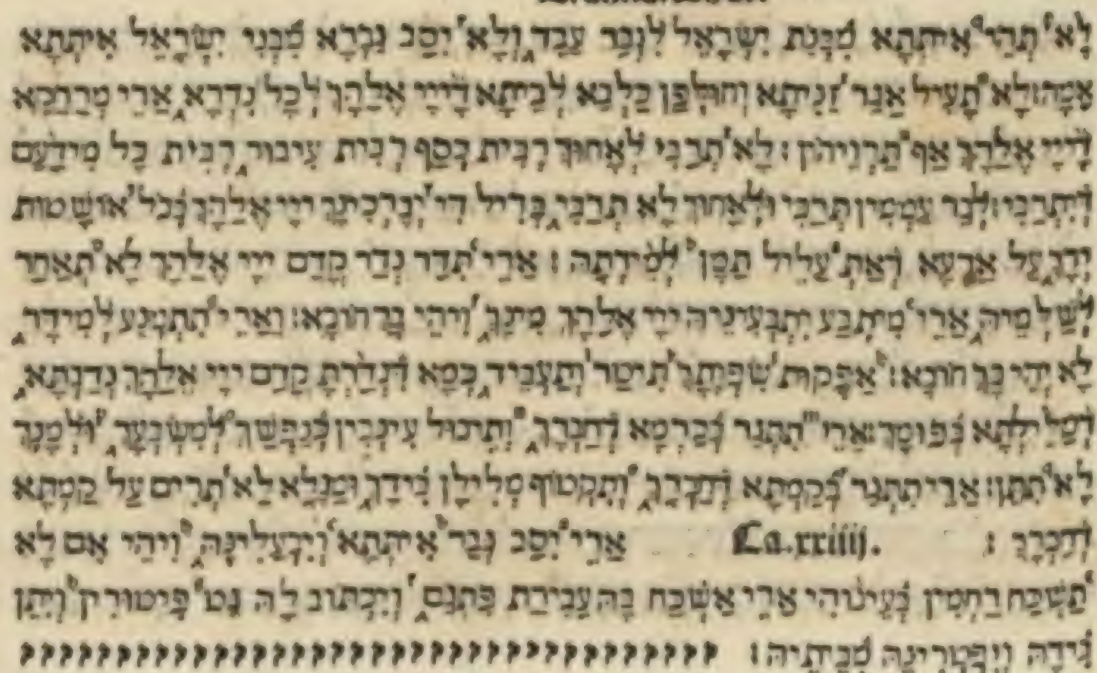 לָא תְהֵי אִיתְתָא מִבְּנַת יִשְׂרָאֵל לִגְבַר עֲבֵד וְלָא יִסַב גַבְרָא מִבְּנֵי יִשְׂרָאֵל אִיתְתָא
אָמָה׃ לָא תָעֵיל אֲגַר זָנִיתָא וְחוּלְפַן כַּלְבָא לְבֵיתָא דַייָי אֱלָהָךְ לְכָל נִדְרָא אֲרֵי מְרַחֲקָא
דַייָי אֱלָהָךְ אַף תַּרְוֵיהוֹן׃ לָא תְרַבֵּי לְאָחוּךְ רִבִּית כְּסַף רִבִּית עִיבוּר רִבִּית כָּל מִידָעַם
דְּיִתְרַבֵּי׃ לְבַר עַמְמִין תְּרַבֵּי וּלְאָחוּךְ לָא תְרַבֵּי בְּדִיל דִּי יְבָרְכִינָךְ יְיָי אֱלָהָךְ בְּכָל אוֹשָׁטוּת
יְדָךְ עַל אַרְעָא דְּאַתְּ עָלֵיל תַּמָּן לְמֵירְתַהּ׃ אֲרֵי תִדַּר נְדַר קֳדָם יְיָי אֱלָהָךְ לָא תְאַחַר
לְשַׁלָּמֵיהּ אֲרֵי מִיתְבַּע יִתְבְּעִינֵיהּ יְיָי אֱלָהָךְ מִינָךְ וִיהֵי בָךְ חוֹבָא׃ וַאֲרֵי תִתְמְנַע לְמִידַּר
לָא יְהֵי בָךְ חוֹבָא׃ אַפָּקוּת שִׂפְוָתָךְ תִּיטַר וְתַעְבֵּיד כְּמָא דִּנְדַרְתָּ קֳדָם יְיָי אֱלָהָךְ נְדַבְתָּא
דְּמַלֵּילְתָּא בְּפוּמָךְ׃ אֲרֵי תִתְּגַר בְּכַרְמָא דְּחַבְרָךְ וְתֵיכוֹל עִינְבִין כְּנַפְשָׁךְ לְמִשְׂבְּעָךְ וּלְמָנָךְ
לָא תִתֵּן׃ אֲרֵי תִתְּגַר בְּקָמְתָא דְּחַבְרָךְ וְתִקְטוֹף מְלִילָן בִּידָךְ וּמַגְּלָא לָא תְרִים עַל קַמְתָא
דְּחַבְרָךְ׃ Ca.xxiiij. אֲרֵי יִסַּב גְּבַר אִיתְּתָא וְיִבְעֲלִינַהּ וִיהֵי אִם לָא
תַשְׁכַּח רַחֲמִין בְּעֵינוֹהִי אֲרֵי אַשְׁכַּח בַּהּ עֲבֵירַת פִּתְגָּם וְיִכְתּוֹב לַהּ גֵּט פִּיטוּרִין וְיִתֵּן
בִּידַהּ וְיִפְטְרִינַהּ מִבֵּיתֵיהּ׃